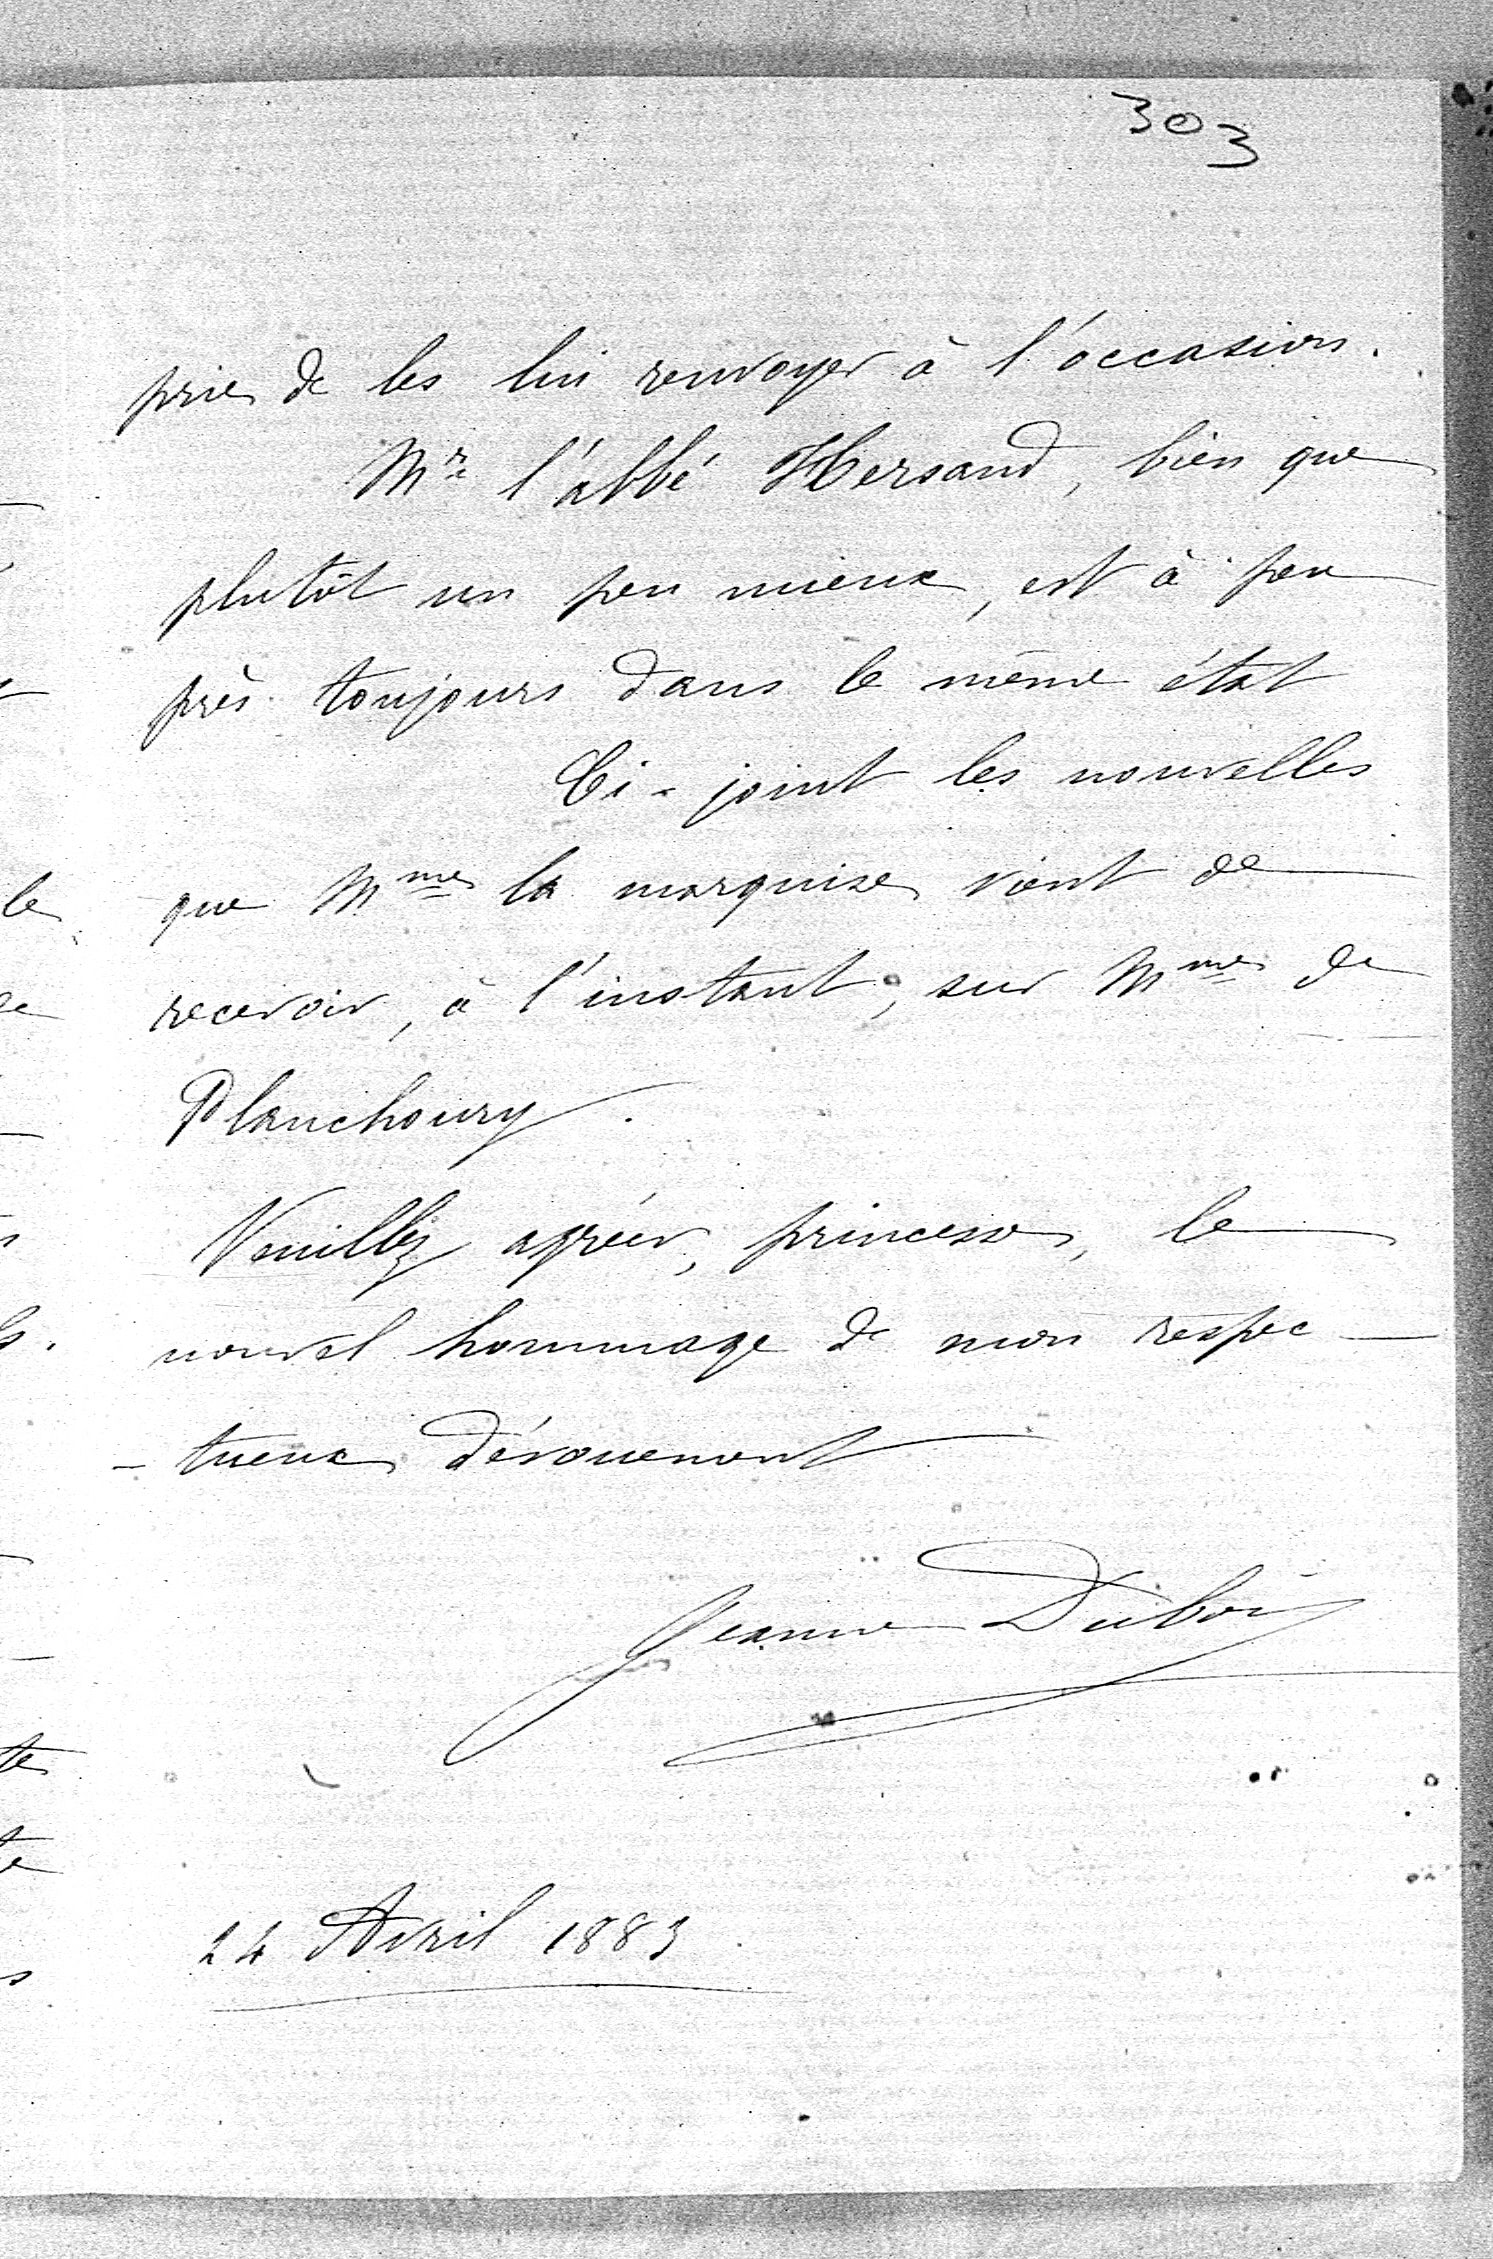 303
prie de les lui renvoyer à l'occasion.
Mr l'abbé Hersand, bien que
plutôt un peu mieux, est à peu
près toujours dans le même état
Ci-joint les nouvelles
que Mme la marquise vient de
recevoir, à l'instant, sur Mme de
Planchoury.
Veuillez agréer, princesse, le
nouvel hommage de mon respec-
-tueux dévouement
Jeanne Dubois
24 Avril 1883